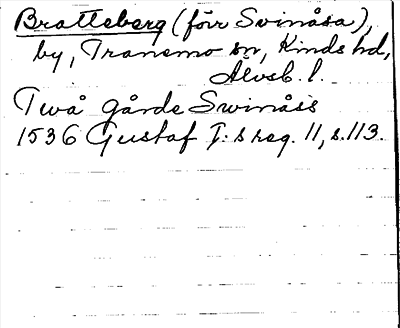 Bratteberg (förr Svinåsa),
by, Tranemo sn, Kinds hd,
Älvsb. l.
Twå gårde Swinåss
1536 Gustaf I:s reg. 11, s. 113.